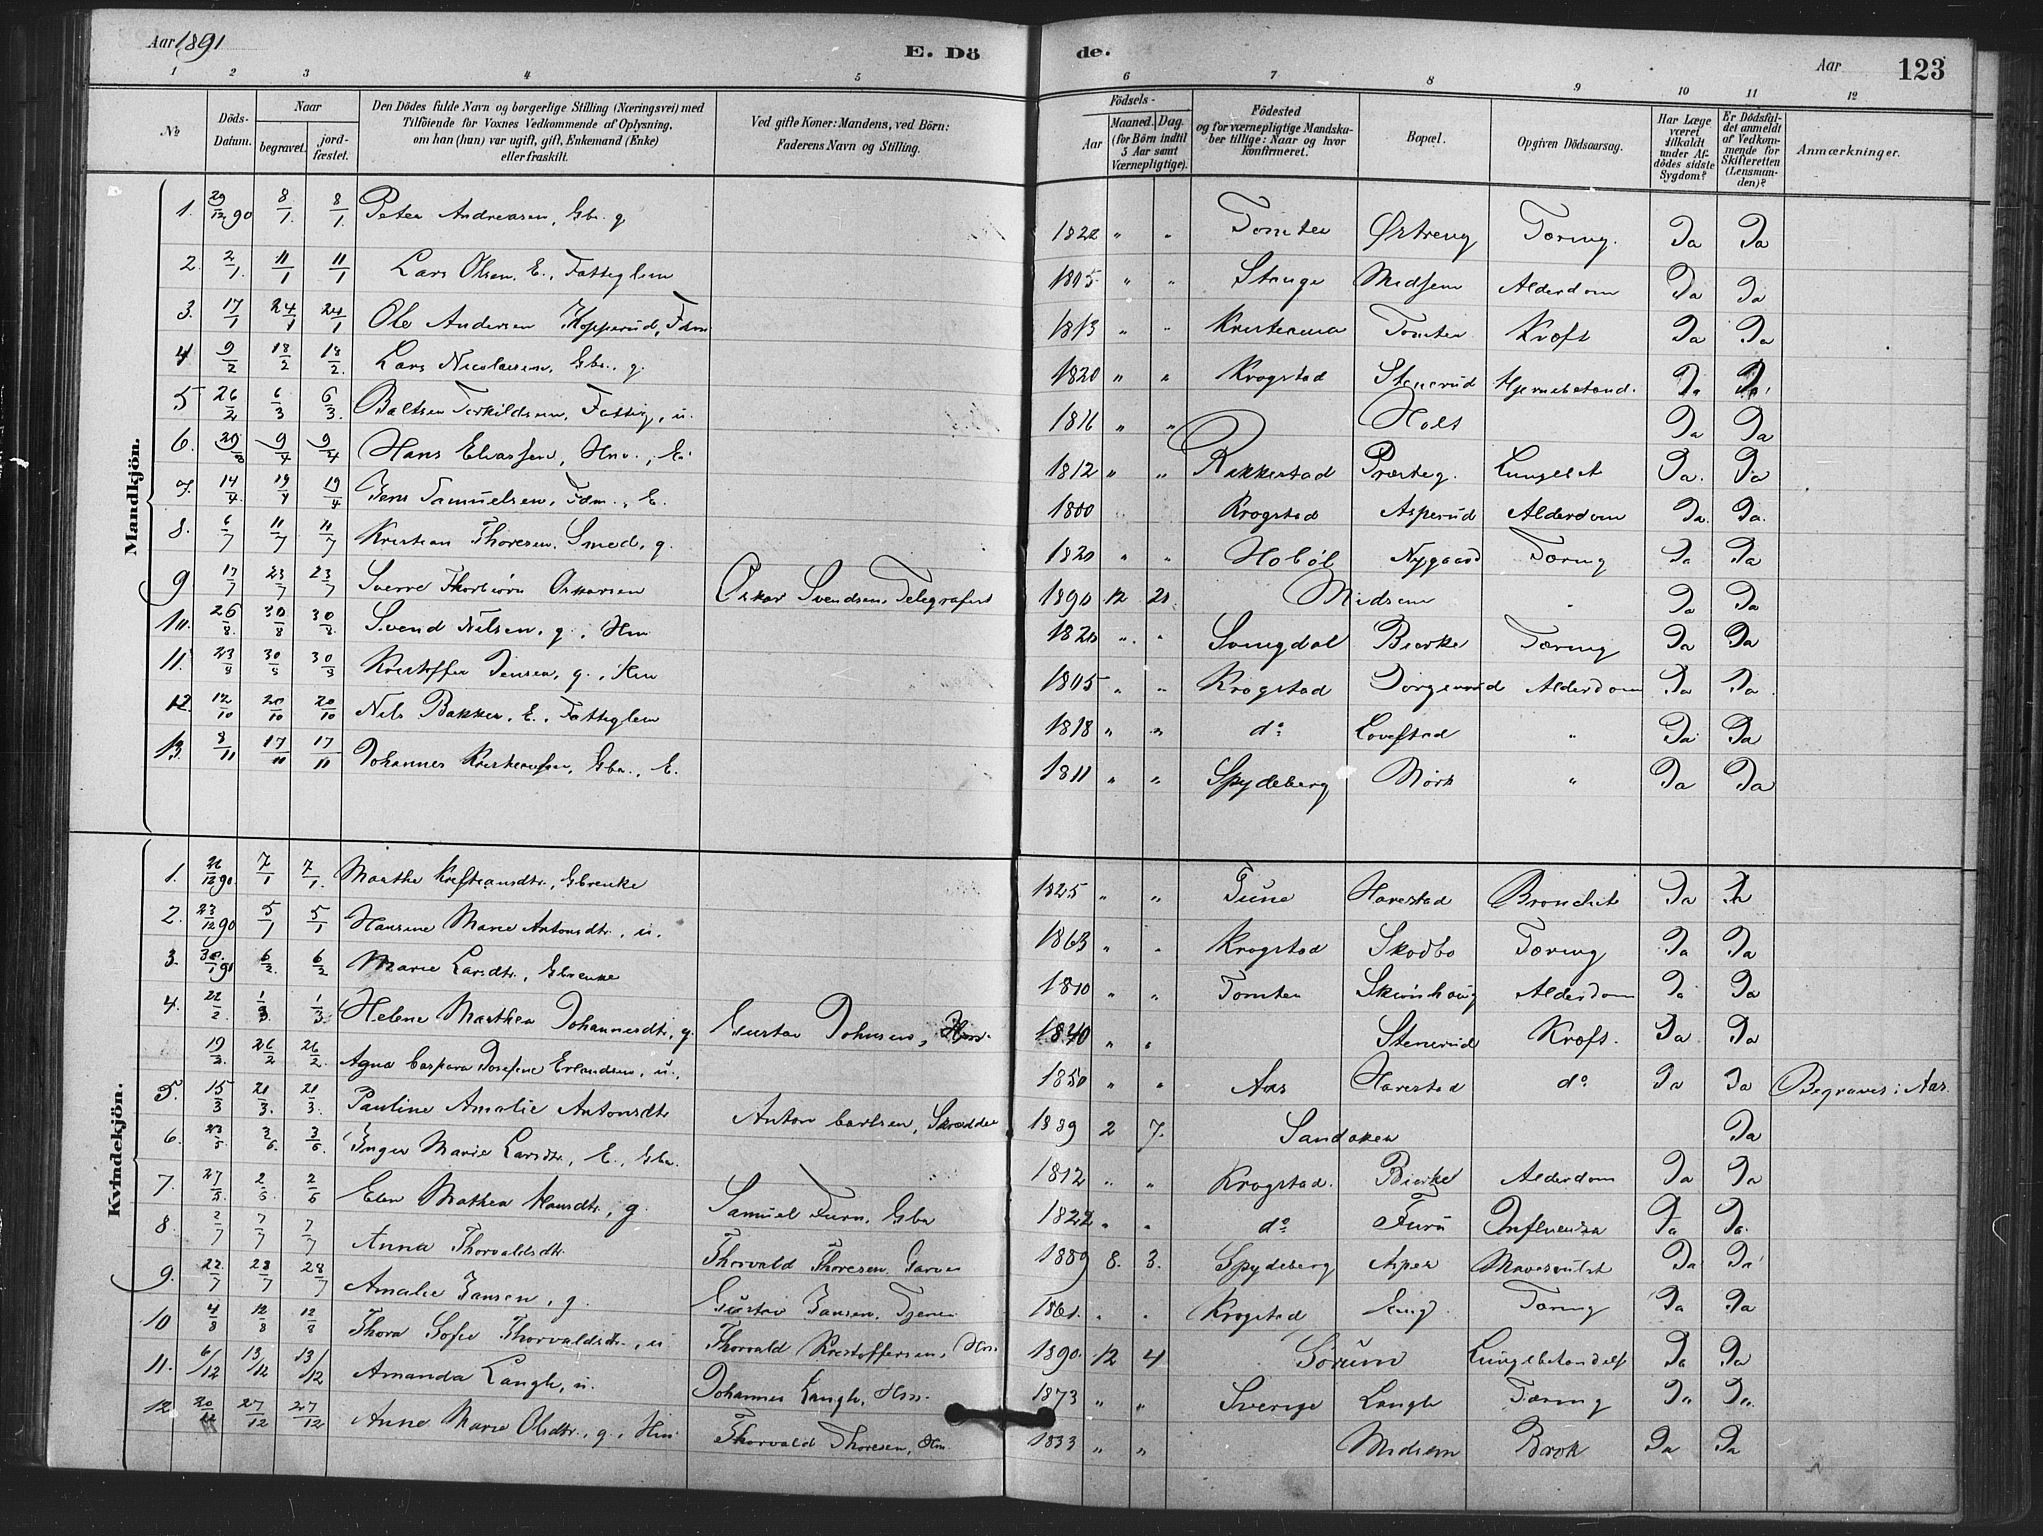 Aar 1891 E. Dö de. Aar 123
1 2 3 4 5 6 7 8 9 10 11 12
No Döds-Datum. Naar begravet. jordfæstet. Den Dödes fulde Navn og borgerlige Stilling (Næringsvei) med Tilföiende for Voxnes Vedkommende af Oplysning, om han (hun) var ugift, gift, Enkemand (Enke) eller fraskilt. Ved gifte Koner: Mandens, ved Börn: Faderens Navn og Stilling. Födsels- Aar Maaned. Dag. (for Börn indtil 5 Aar samt Værnepligtige). Födested og for værnepligtige Mandskaber tillige: Naar og hvor konfirmeret. Bopæl. Opgiven Dödsaarsag. Har Læge været tilkaldt under Afdödes sidste Sygdom? Er Dödsfaldet anmeldt af Vedkommende for Skifteretten (Lensmanden)? Anmærkninger.
Mandkjön.
1. 29/12 90 8/1. 8/1. Peter Andreasen, Gbr. g. 1822 " " Tomter Østreng Tæring. Ja Ja
2. 2/1. 11/1 11/1 Lars Olsen, E., Fattiglem 1805 " " Stange Midsem Alderdom Ja Ja
3. 17/1 24/1 24/1 Ole Andersen Kopperud, Fdm 1813 " " Kristiania Tomter Kræft Ja Ja
4 9/2 18/2 18/2. Lars Nicolaisen, Gbr., g. 1820 " " Krogstad Stenerud Hjernebetænd. Ja Ja
5 26/2 6/3 6/3. Baltser Torkildsen, Fattig, u. 1816 " " Holt Ja Ja
6. 29/3 9/4 9/4 Hans Eliassen, Hm., E. 1812 " " Rakkestad Præsteg. Lungebet Ja. Ja
7. 14/4. 19/4 19/4 Jens Samuelsen, Fdm., E. 1800 Krogstad Asperud Alderdom Ja. Ja.
8. 6/7 11/7 11/7 Kristian Thoresen, Smed, g. 1820 " " Hobøl Nygaard Tæring Ja Ja
9 17/7 23/7 23/7 Sverre Thorbiørn Oskarsen Oskar Svendsen, Telegrafist 1890 12 21 Midsem " Ja Ja
10. 26/8. 30/8 30/8. Svend Nilsen, g., Hm 1820 " " Bierke Tæring Ja Ja
11. 23/8 30/8 30/8 Kristoffer Jensen, g., Hm 1805 " " Krogstad Alderdom Ja Ja
12. 12/10 20/10 20/10 Nils Bakker, E., Fattiglem 1818 " " do Lovestad " Ja Ja
13. 8/11 17/11 17/11 Johannes Kristiansen, Gbr., E. 1811 " " Spydeberg Mørk " Ja Ja
Kvindekjön.
1. 26/12 90. 7/1 7/1. Marthe Kristiansdtr., Gbrenke 1825 " " Tune Harestad Bronchit Ja Ja
2. 23/12 90 5/1 5/1 Hansine Marie Antonsdtr., u. 1863 " " Krogstad Skodbo Tæring Ja Ja
3. 30/1 90 6/2. 6/2 Marie Larsdtr., Gbrenke 1810 " " Tomter Skiønhaug Alderdom Ja Ja
4. 22/2. 1/3 1/3 Helene Marthea Johannesdtr., g. Gustav Johnsen, Hm. 1840 " " Stenerud Kræft. Ja Ja
19/2. 26/2 26/2. Agna Caspara Josefine Erlandsen, u. 1850 " " Aas Harestad do Ja Ja Begraves i Aas.
5. 15/3 21/3. 21/3. Pauline Amalie Antonsdtr Anton Carlsen, Skrædder 1889 2 7. Sandaker Ja
6. 23/5 3/6. 3/6. Inger Marie Larsdtr., E., Gbr. 1812 " " Krogstad. Bierke Alderdom Ja Ja
7. 27/5 2/6 2/6 Elen Mathea Hansdtr., g. Samuel Furu, Gbr 1822 " " do Furu Influenza Ja Ja
8. 2/7 7/7 7/7 Anna Thorvaldsdtr. Thorvald Thoresen, Garver 1889 8. 3. Spydeberg Asper Ja Ja
9. 22/7 28/7 28/7 Amalie Jansen, g. Gustav Jansen, Tjener 1861. " " Krogstad Eng. Tæring Ja Ja
10 4/8 12/8 12/8 Thora Sofie Thorvaldsdtr., u Thorvald Kristoffersen, Hm. 1890. 12 4 Sørum Lungebetændelse Ja Ja
11. 6/12 13/12 13/12 Amanda Langli, u. Johannes Langli, Hm. 1873 " " Sverige Langli Tæring Ja Ja.
12 20/12 27/12 27/12 Anne Marie Olsdtr., g., Hm Thorvald Thoresen, Hm. 1833 " " Midsem Brok Ja Ja